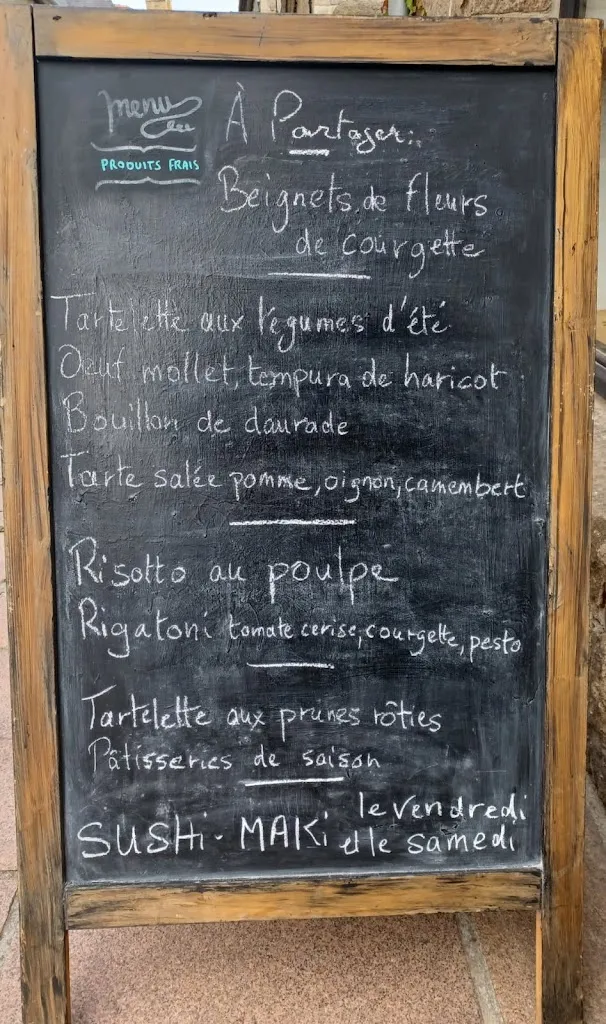 menu
PRODUITS FRAIS
À Partager:
Beignets de fleurs
de courgette
Tartelette aux légumes d'été
Oeuf mollet, tempura de haricot
Bouillon de daurade
Tarte salée pomme, oignon, camembert
Risotto au poulpe
Rigatoni tomate cerise, courgette, pesto
Tartelette aux prunes rôties
Pâtisseries de saison
SUSHi - MAKi le vendredi
et le samedi